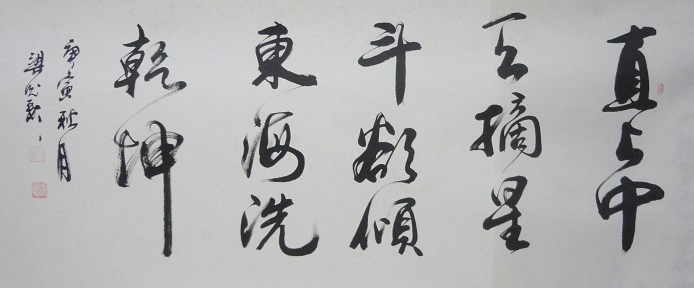 直上中
天摘星
斗欲傾
東海洗
乾坤
庚寅秋月